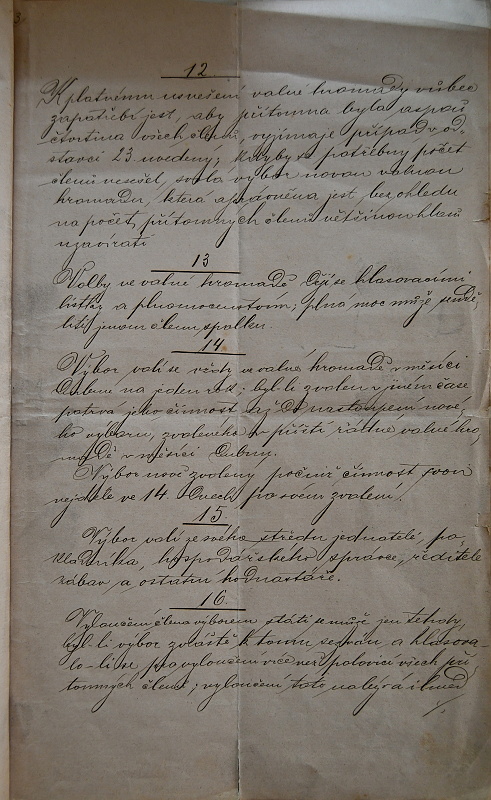 12.
K platnému usnešení valné hromady vůbec
zapotřebí jest, aby přítomna byla aspoň
čtvrtina všech členů, vyjímaje případ v od-
stavci 23. uvedený; kdyby se potřebný počet
členů nesešel, svolá výbor novou valnou
hromadu, která oprávněna jest, bez ohledu
na počet přítomných členů většinou hlasů
uzavírati
13
Volby ve valné hromadě dějí se hlasovacími
lístky a plnomocenstvím; plná moc může
jenom členu spolku.
14
Výbor volí se vždy ve valné hromadě v měsíci
dubnu na jeden rok; byl-li zvolen v jiném čase
potrvá jeho činnost až do nastoupení nové-
ho výboru, zvoleného v příští řádné valné hro-
madě v měsíci dubnu.
Výbor nově zvolený počíná činnost svou
nejdéle ve 14 dnech po svém zvolení.
15.
Výbor volí ze svého středu jednatele, po-
kladníka, hospodářského správce, ředitele
zábav a ostatní hodnostáře.
16.
Vyloučení člena výborem státi se může jen tehdy,
byl-li výbor zvláště k tomu sezván a hlasova-
lo-li se pro vyloučení více než polovice všech pří-
tomných členů; vyloučení toto nabývá ihned